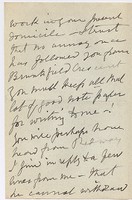 work in your present
domicile – I trust
that no array once
has followed you from
Bruntsfield Crescent
You must keep all that
lot of good note paper
for writing to me!
You will perhaps have
heard from Redway
I find in reply to a few
lines from me – that
he cannot withdraw